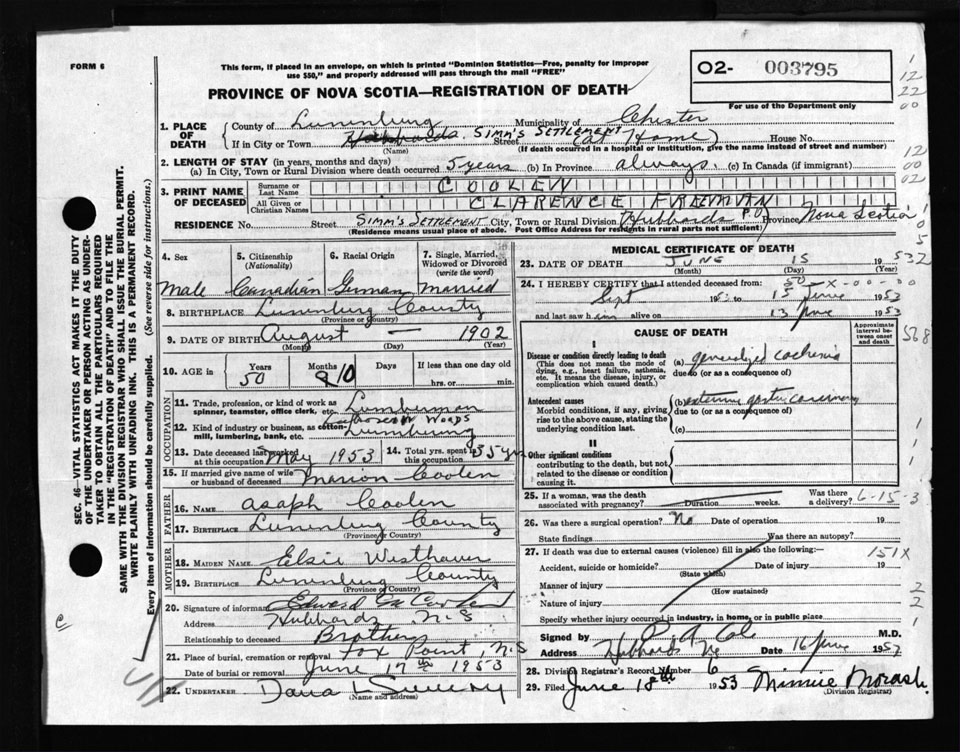 FORM 6
This form, if placed in an envelope, on which is printed "Dominion Statistics—Free, penalty for improper
use $50," and properly addressed will pass through the mail "FREE"
PROVINCE OF NOVA SCOTIA—REGISTRATION OF DEATH
02- 003795
For use of the Department only
1
12
22
00
12
00
02
1. PLACE OF DEATH
County of Lunenburg Municipality of Chester
If in City or Town Hubbards. SIMM'S SETTLEMENT Street (at Home) House No.
(Name) (If death occurred in a hospital or institution, give the name instead of street and number)
2. LENGTH OF STAY (in years, months and days)
(a) In City, Town or Rural Division where death occurred 5 years (b) In Province always. (c) In Canada (if immigrant)
3. PRINT NAME OF DECEASED
Surname or Last Name COOLEN
All Given or Christian Names CLARENCE FREEMAN
RESIDENCE No. Street SIMM'S SETTLEMENT City, Town or Rural Division Hubbards P.O. Province Nova Scotia
(Residence means usual place of abode. Post Office Address for residents in rural parts not sufficient)
4. Sex Male
5. Citizenship (Nationality) Canadian
6. Racial Origin German
7. Single, Married, Widowed or Divorced (write the word) Married
8. BIRTHPLACE Lunenburg County
(Province or Country)
9. DATE OF BIRTH August — 1902
(Month) (Day) (Year)
10. AGE in Years 50 Months 10 Days If less than one day old
hrs. or min.
OCCUPATION
11. Trade, profession, or kind of work as spinner, teamster, office clerk, etc. Lumberman
12. Kind of industry or business, as cotton-mill, lumbering, bank, etc. WOODS
13. Date deceased last worked at this occupation May 1953
14. Total yrs. spent in this occupation 35 yrs
15. If married give name of wife or husband of deceased Marion Coolen
FATHER
16. NAME Asaph Coolen
17. BIRTHPLACE Lunenburg County
(Province or Country)
MOTHER
18. MAIDEN NAME Elsie Westhaver
19. BIRTHPLACE Lunenburg County
(Province or Country)
20. Signature of informant Edward
Address Hubbards N.S
Relationship to deceased Brother
21. Place of burial, cremation or removal Fox Point, N.S
Date of burial or removal June 17th 1953
22. UNDERTAKER Dana L Sweeny
(Name and address)
MEDICAL CERTIFICATE OF DEATH
23. DATE OF DEATH JUNE 15 1953
(Month) (Day) (Year)
24. I HEREBY CERTIFY that I attended deceased from:
Sept 1950 to 15 June 1953
and last saw him alive on 13 June 1953
CAUSE OF DEATH
Approximate interval between onset and death
I
Disease or condition directly leading to death
(This does not mean the mode of dying, e.g., heart failure, asthenia, etc. It means the disease, injury, or complication which caused death.)
(a) generalized cachexia
due to (or as a consequence of)
Antecedent causes
Morbid conditions, if any, giving rise to the above cause, stating the underlying condition last.
(b) extensive gastric carcinoma
due to (or as a consequence of)
(c)
II
Other significant conditions contributing to the death, but not related to the disease or condition causing it.
25. If a woman, was the death associated with pregnancy? Duration weeks. Was there a delivery? 6-15-3
26. Was there a surgical operation? No Date of operation 19
State findings Was there an autopsy?
27. If death was due to external causes (violence) fill in also the following:— 151X
Accident, suicide or homicide? Date of injury 19
(State which)
Manner of injury
(How sustained)
Nature of injury
Specify whether injury occurred in industry, in home, or in public place
Signed by P A Cole M.D.
Address Hubbards NS Date 16 June 1953
28. Division Registrar's Record Number 6
29. Filed June 18th 1953 Minnie Morash.
(Division Registrar)
SEC. 46—VITAL STATISTICS ACT MAKES IT THE DUTY
OF THE UNDERTAKER OR PERSON ACTING AS UNDER-
TAKER TO OBTAIN ALL THE PARTICULARS REQUIRED
IN THE "REGISTRATION OF DEATH" AND TO FILE THE
SAME WITH THE DIVISION REGISTRAR WHO SHALL ISSUE THE BURIAL PERMIT.
WRITE PLAINLY WITH UNFADING INK. THIS IS A PERMANENT RECORD.
Every item of information should be carefully supplied. (See reverse side for instructions.)